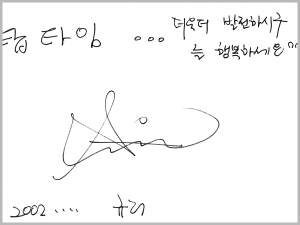 클럽 타임 ... 더욱더 발전하시구
늘 행복하세요^^
2002..... 규리